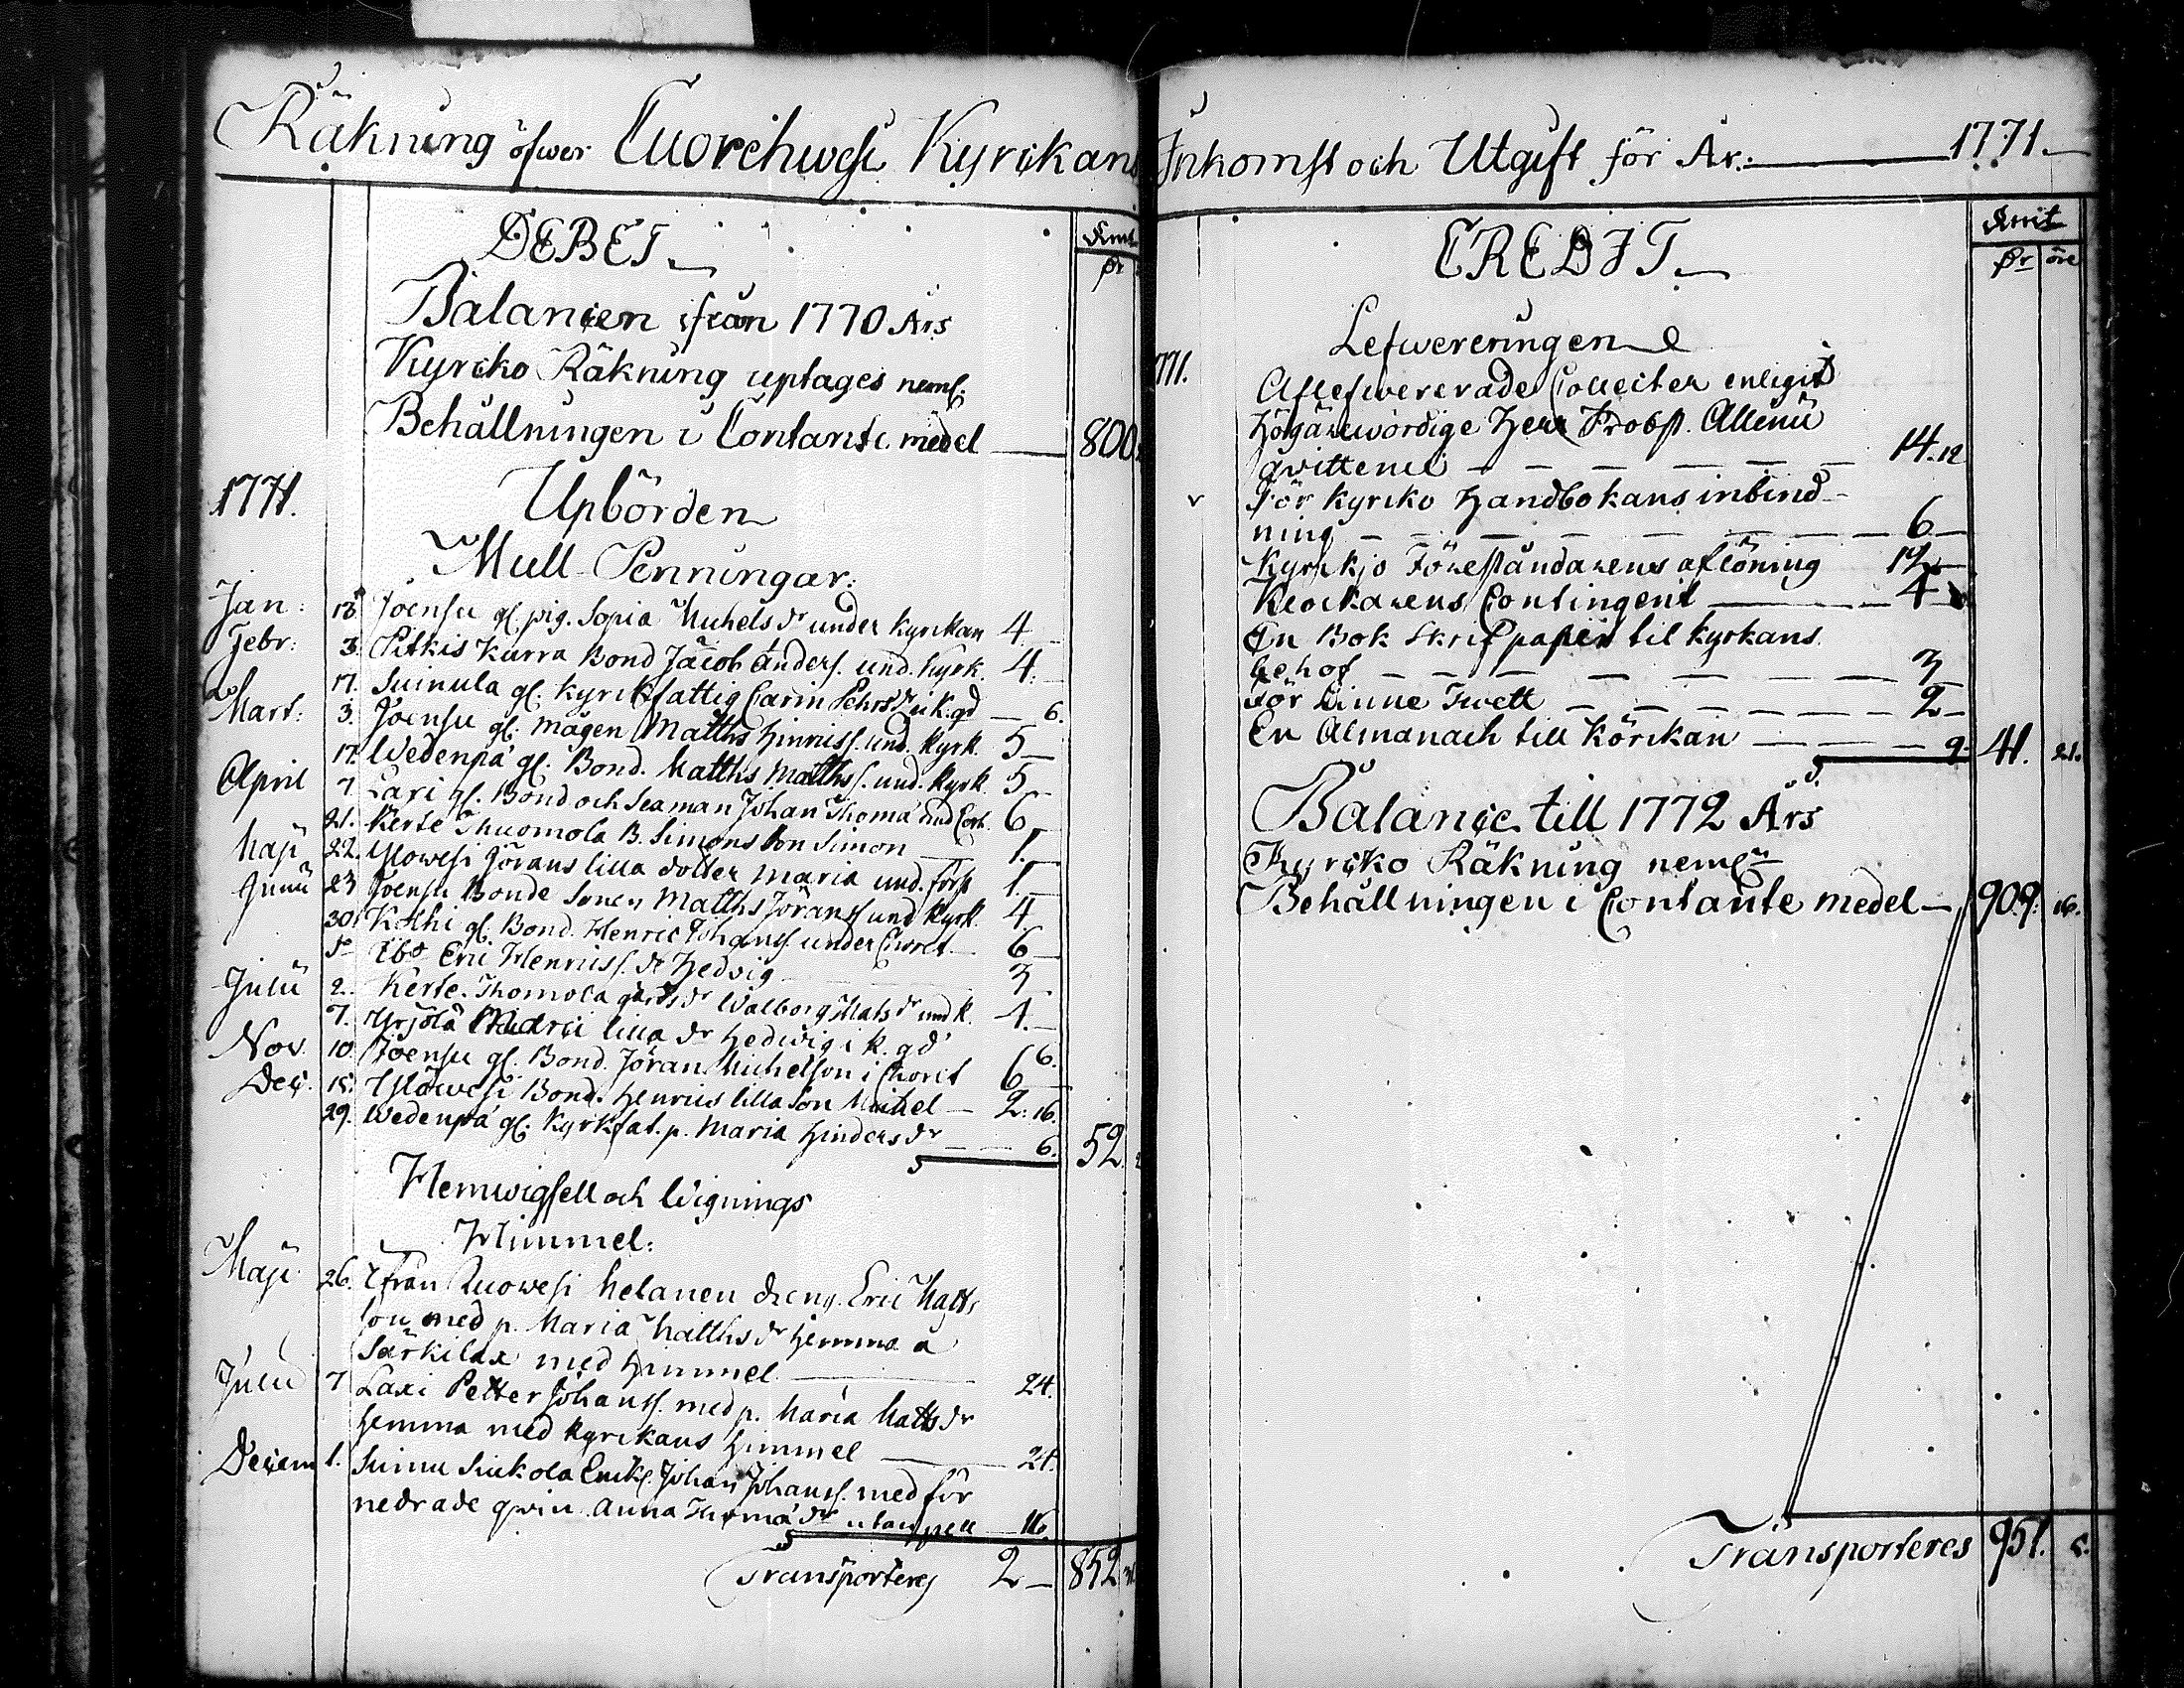 Räkning öfwer Cuorehwesi Kyrckans Inkomst och Utgift för År: 1771.
DEBET
Kmt
Pr
Balancen ifrån 1770 Års
Kyrcko Räkning uptages neml:
Behållningen i Contante medel 800
1771. Upbörden
Mull-Penningar:
Jan: 18 Joensu gl. pig. Sopia Michels dr under kyrckan 4
Febr: 3. Pitkis Kurra Bond Jacob Anders. und. kyrk. 4:
17. Suinula gl. kyrckfattig Carin Pehrs dr i k. gd 6.
Mart: 3. Joensu gl. mågen Matths Hinricss. und. kyrk. 5
17. Wedenpä gl. Bond. Matths Matthss. und. kyrk. 5
April 7 Laxi gl. Bond och Seaman Johan Thoma und 6
21. Kerte Thuomola B. Simons son Simon 1.
Maji 22. Ylowesi Görans lilla dotter Maria und. 1.
Junii 23 Joensu Bonde Sonen Matths Jöranss und kyrk. 4
30 Kothi gl. Bond. Henric Johanss under Choret 6
Eric Henricss. dr Hedvig 3
Julii 2. Kerte Thomola gårds dr Walborg Mats dr und k. 1.
7. Yrjölä lilla dr Hedwig i k. gd 6.
Nov. 10. Joensu gl. Bond. Jöran Michelson i Choret 6
Dec. 15. Ylöwesi Bond. Henrics lilla Son Michel 2: 16.
29. Wedenpä gl. Kyrkfat. p. Maria Hinders dr 6. 52
Hemwigsell och Wignings
Himmel:
Maji 26. Ifrån Kuowesi Melanen dreng. Eric Matts
son med p. Maria Matths dr hemma a
Särkilax med Himmel 24.
Julii 7 Laxi Petter Johanss. med p. Maria Matts dr
hemma med kyrckans Himmel 24.
Decem 1. Sunnu Suckola Enckl. Johan Johanss. med för
nedrade qwin. Anna Thoma dr utan pell 16.
Transporteres 2 852
CREDIT
Kmt
Pr öre
Lefwereringen
1771. Aflefwererade Collecter enligit
Högärewördige Herr Probst. Allenii
qvittence 14. 12
För kyrcko Handbokans inbind-
ning 6
Kyrckjo Föreståndarens aflöning 12
Klockarens Contingent 4
En Bok skrifpapper til kyrkans
behof 3
För Linne Twett 2
En Almanach till Körckan 9. 41. 21.
Balance till 1772 Års
Kyrcko Räkning neml
Behållningen i Contante medel 909. 16.
Transporteres 951. 5.